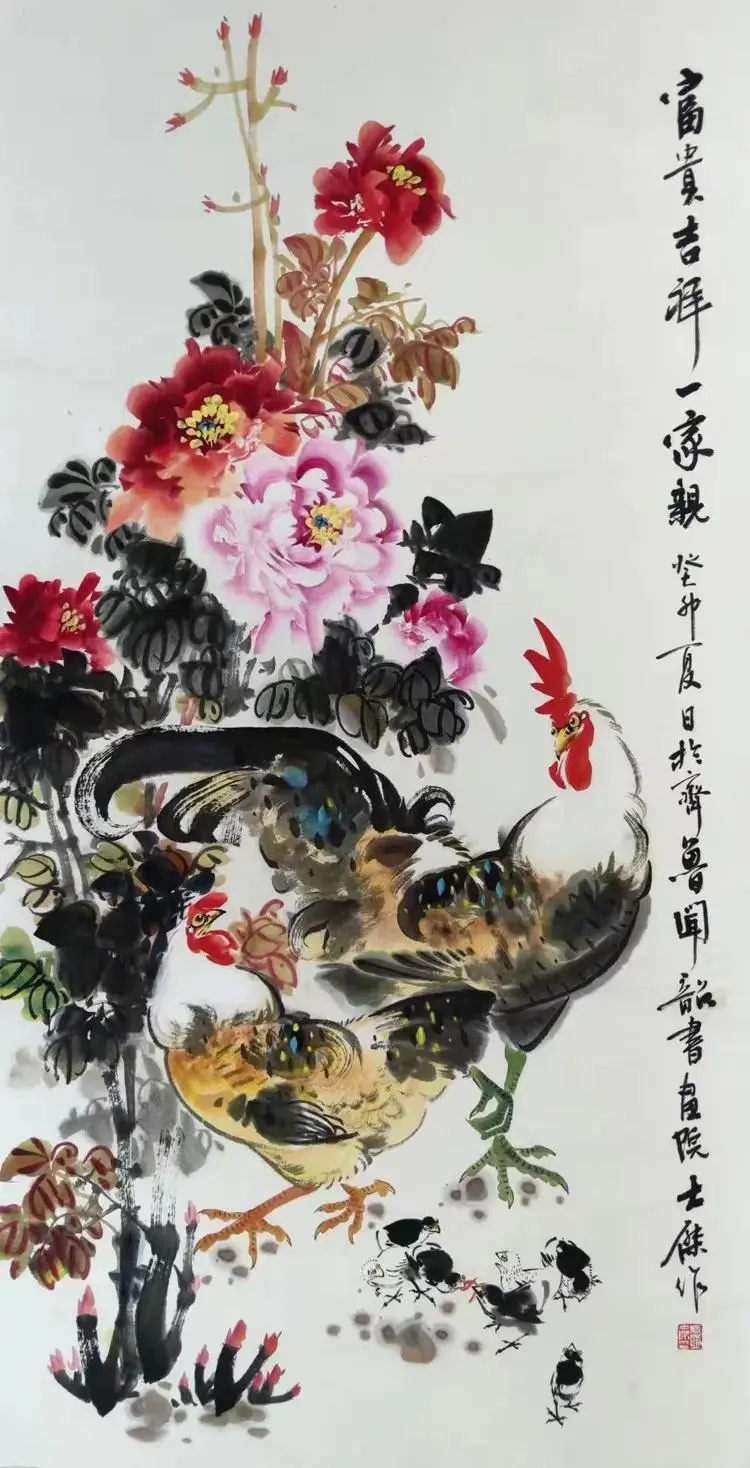 富貴吉祥一家親 癸卯夏日於齊魯聞韶書畫院士傑作